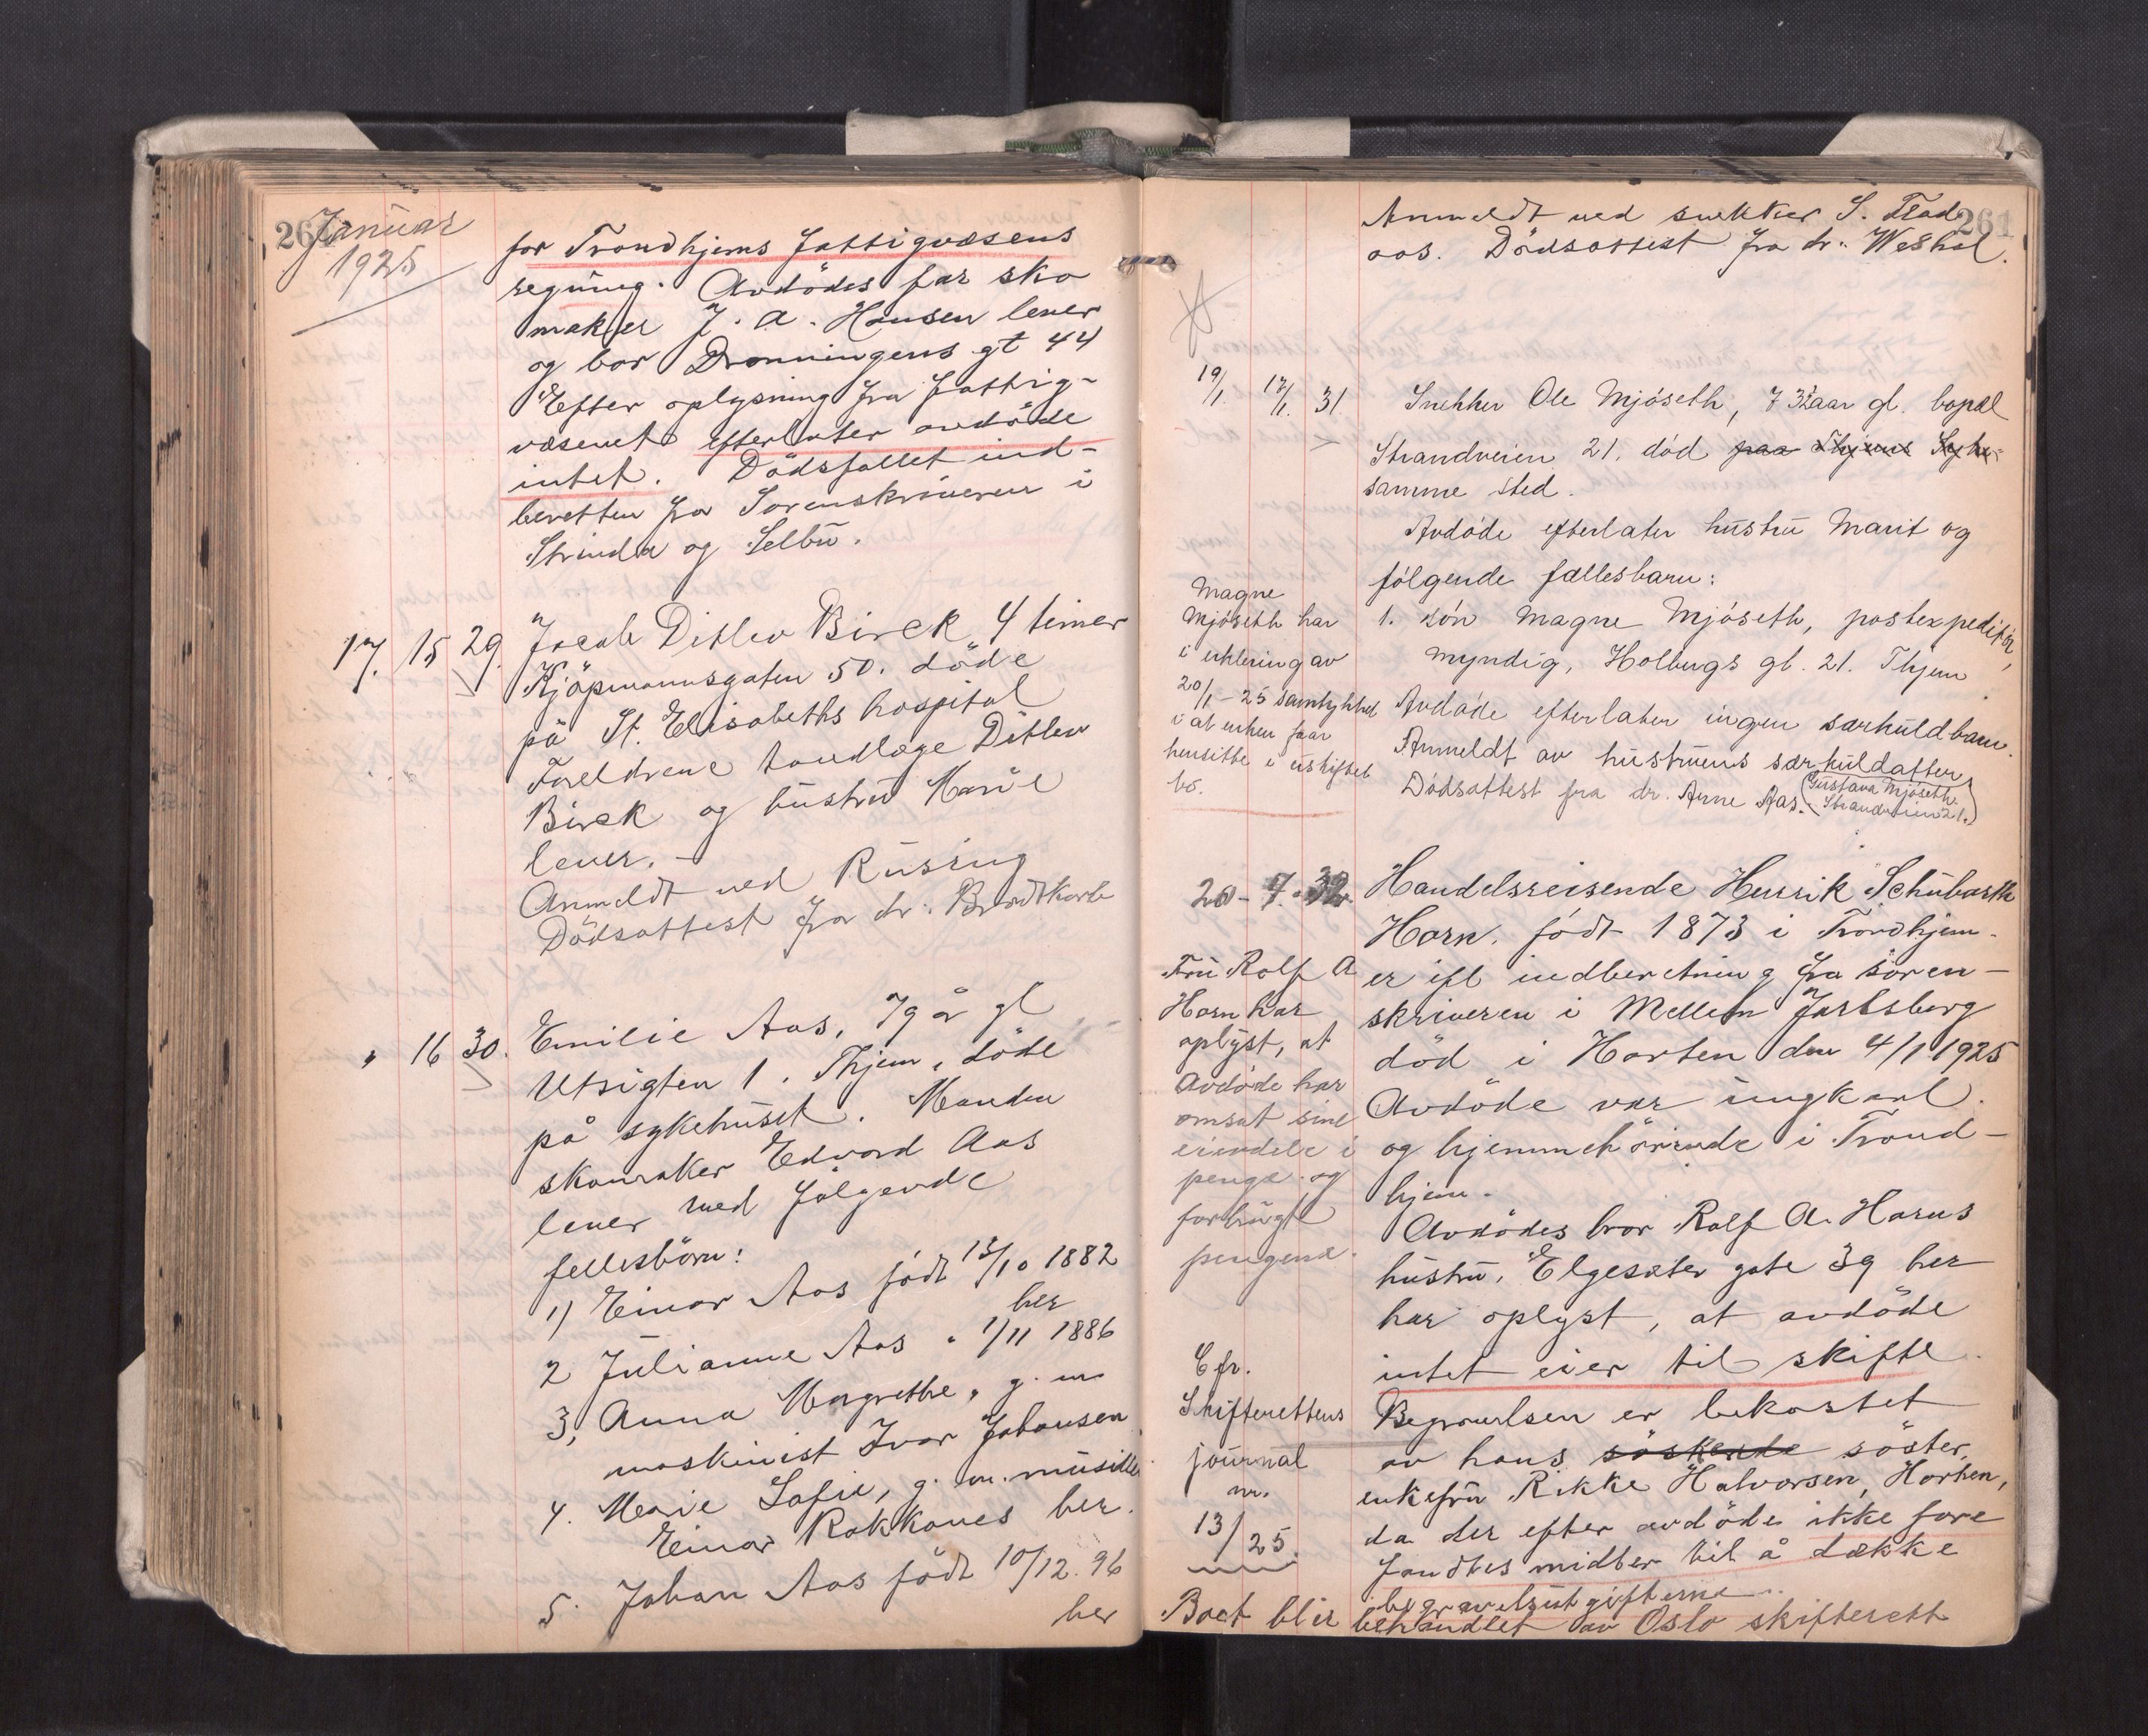 Januar
1925
for Trondhjems Fattigvæsens
regning. Avdödes far sko
maker J. A. Hansen lever
og bor Dronningens gt 44
Efter oplysning fra Fattig-
væsenet efterlater avdöde
intet. Dödsfallet ind-
berettet fra Sorenskriveren i
Strinda og Selbu.
17. 15 29. Jacob Ditlev Birck, 4 timer
Kjöpmannsgaten 50. döde
på St. Elisabeths hospital
Foreldrene tandlæge Ditlev
Birck og hustru Marie
lever. -
Anmeldt ved Rusing
Dödsattest fra dr. Brodtkorb
" 16 30. Emilie Aas, 79 år gl
Utsigten 1. Thjem, döde
på sykehuset. Manden
skomaker Edvard Aas
lever med fölgende
fellesbörn:
1) Einar Aas födt 13/10 1882
her
2 Julianne Aas " 1/11 1886
3, Anna Margrethe, g. m
maskinist Ivar Johansen
4. Marie Sofie, g. m. musiker
Einar Rokkones her.
5. Johan Aas födt 10/12. 96
her
261
Anmeldt ved snekker S. Flad
aas. Dödsattest fra dr. Weshol.
19/1. 17/1. 31. Snekker Ole Mjöseth, 73 aar gl. bopæl
Strandveien 21. död paa Thjems Syke-
samme sted.
Avdöde efterlater hustru Marit og
fölgende fællesbarn:
1. sön Magne Mjöseth, postexpeditör,
myndig, Holbergs gt. 21. Thjem
Avdöde efterlater ingen særkuldbarn.
Anmeldt av hustruens særkuldatter
Dödsattest fra dr. Arne Aas. (Gustava Mjöseth
Strandveien 21.)
Magne
Mjöseth har
i erklæring av
20/1-25 samtykket
i at enken faar
hensitte i uskiftet
bo.
20 - 7. 32. Handelsreisende Henrik Schubarth
Horn. födt 1873 i Trondhjem.
er ifl indberetning fra soren-
skriveren i Mellem Jarlsberg
död i Horten den 4/1 1925
Avdöde var ungkarl.
og hjemmehörende i Trond-
hjem.
Avdödes bror Rolf A. Horns
hustru, Elgesæter gate 39 her
har oplyst, at avdöde
intet eier til skifte.
Begravelsen er bekostet
av hans söskende söster,
enkefru Rikke Halvorsen, Horten,
da der efter avdöde ikke fore
fandtes midler til å dække
begravelsutgifterne.
Fru Rolf A
Horn har
oplyst, at
Avdöde har
omsat sine
eiendele i
penge og
forbrugt
pengene.
Cfr.
Skifterettens
journal
nr.
13/25.
Boet blir behandlet av Oslo skifterett